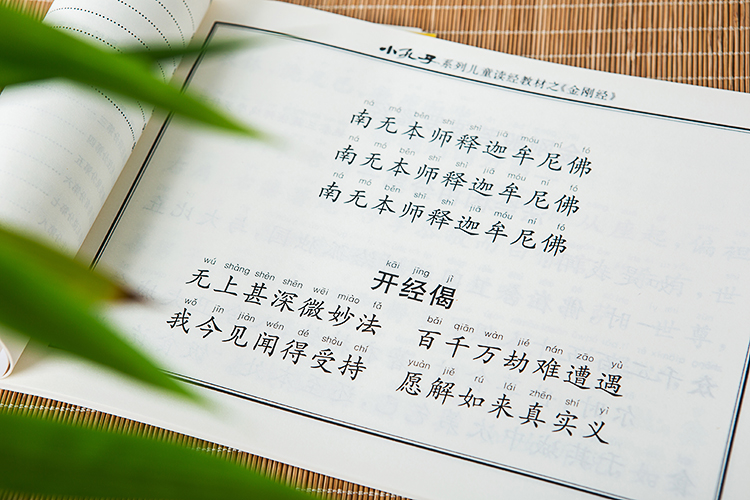 小孔子系列儿童读经教材之《金刚经》
nā mó běn shī shì jiā móu ní fó
南无本师释迦牟尼佛
nā mó běn shī shì jiā móu ní fó
南无本师释迦牟尼佛
nā mó běn shī shì jiā móu ní fó
南无本师释迦牟尼佛
kāi jīng jì
开经偈
wú shàng shèn shēn wēi miào fǎ
无上甚深微妙法
bǎi qiān wàn jié nán zāo yù
百千万劫难遭遇
wǒ jīn jiàn wén dé shòu chí
我今见闻得受持
yuàn jiě rú lái zhēn shí yì
愿解如来真实义